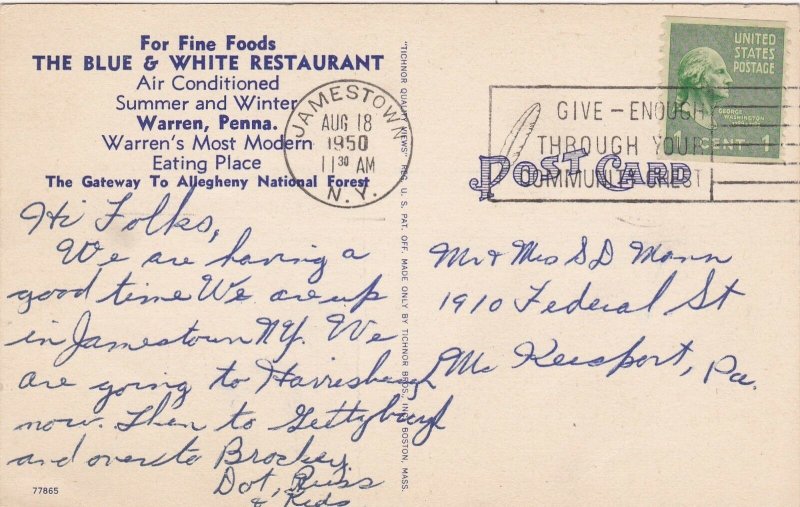 For Fine Foods
THE BLUE & WHITE RESTAURANT
Air Conditioned
Summer and Winter
Warren, Penna.
Warren's Most Modern
Eating Place
The Gateway To Allegheny National Forest
JAMESTOWN
AUG 18
1950
11 30 AM
N.Y.
GIVE - ENOUGH
THROUGH YOUR
COMMUNITY CHEST
UNITED
STATES
POSTAGE
GEORGE
WASHINGTON
1 CENT 1
POST CARD
Hi Folks,
We are having a
good time We are up
in Jamestown NY. We
are going to Harrisburgh
now. Then to Gettyburgh
and over to
Dot, Russ
& Kids
77865
"TICHNOR QUALITY VIEWS" REG. U. S. PAT. OFF. MADE ONLY BY TICHNOR BROS., INC., BOSTON, MASS.
Mr & Mrs S D Mann
1910 Federal St
Mc Keesport, Pa.